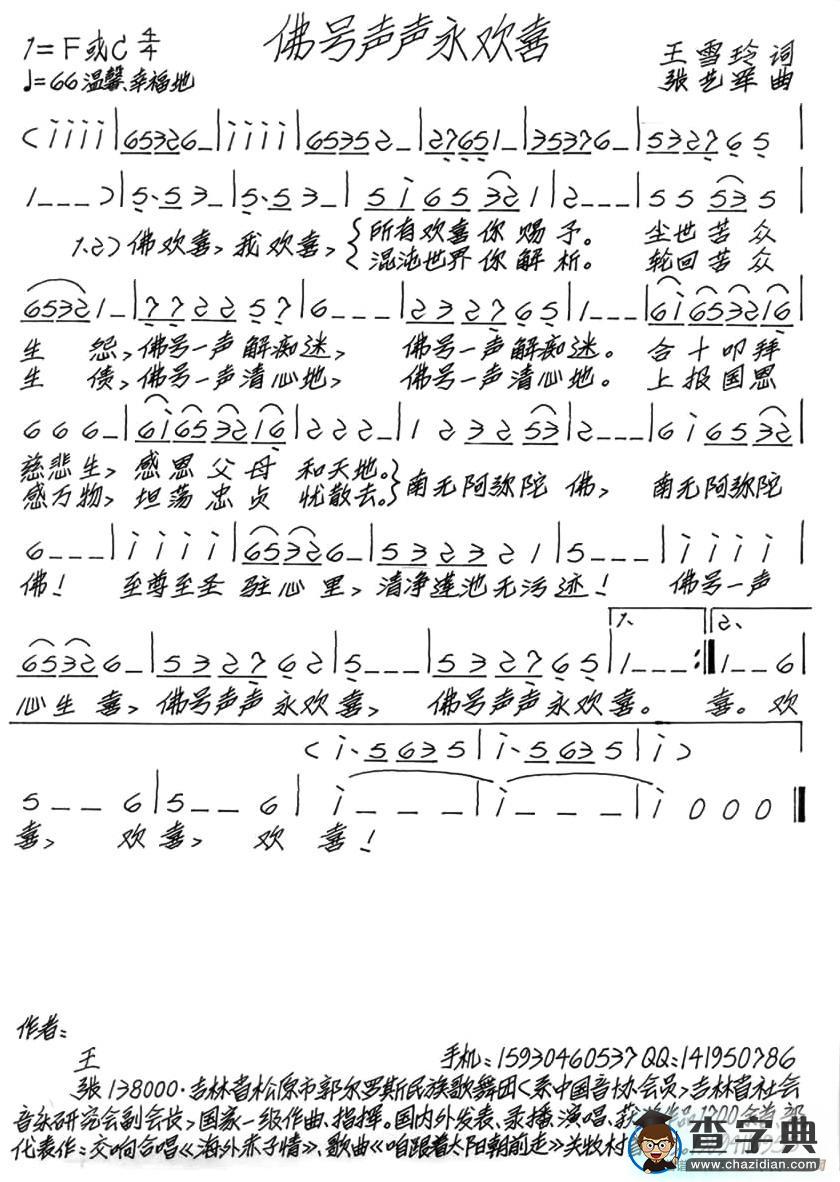 佛号声声永欢喜
1=F或C 4/4
♩=66 温馨、幸福地
王雪玲 词
张艺军 曲
(i i i i | 6 5 3 2 6 _ | i i i i | 6 5 3 5 2 _ | 2 7 6 5 1 _ | 3 5 3 7 6 _ | 5 3 2 7 6 5 |
1 _ _ _ ) | 5· 5 3 _ | 5· 5 3 _ | 5 i 6 5 3 2 1 | 2 _ _ _ | 5 5 5 3 5
1.2) 佛欢喜,我欢喜,{所有欢喜你赐予。 尘世苦众
混沌世界你解析。 轮回苦众
6 5 3 2 1 _ | 7 7 2 2 5 7 | 6 _ _ _ | 2 3 2 7 6 5 | 1 _ _ _ | 6 i 6 5 3 2 1 6 |
生 怨,佛号一声解痴迷, 佛号一声解痴迷。 合十叩拜
生 债,佛号一声清心地, 佛号一声清心地。 上报国恩
6 6 6 _ | 6 i 6 5 3 2 1 6 | 2 2 2 _ | 1 2 3 2 2 5 3 | 2 _ _ _ | 6 i 6 5 3 2 |
慈悲生, 感恩父母 和天地。} 南无阿弥陀 佛, 南无阿弥陀
感万物, 坦荡忠贞 忧散去。
6 _ _ _ | i i i i | 6 5 3 2 6 _ | 5 3 2 3 2 1 | 5 _ _ _ | i i i i |
佛! 至尊至圣 驻心里, 清净莲池无污迹! 佛号一声
1. 2.
6 5 3 2 6 _ | 5 3 2 7 6 2 | 5 _ _ _ | 5 3 2 7 6 5 | 1 _ _ _ :‖ 1 _ _ 6 |
心生喜, 佛号声声永欢喜, 佛号声声永欢喜。 喜。 欢
(i· 5 6 3 5 | i· 5 6 3 5 | i )
5 _ _ 6 | 5 _ _ 6 | i _ _ _ | i _ _ _ | i 0 0 0 ‖
喜, 欢喜, 欢 喜!
作者:
王 手机:15930460537 QQ:141950786
张 138000·吉林省松原市郭尔罗斯民族歌舞团(系中国音协会员,吉林省社会
音乐研究会副会长,国家一级作曲、指挥。国内外发表、录播、演唱、获
代表作:交响合唱《海外赤子情》、歌曲《咱跟着太阳朝前走》关牧村
查字典
www.chazidian.com